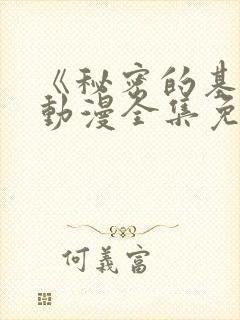 《秘密的基
动漫全集免
何義富